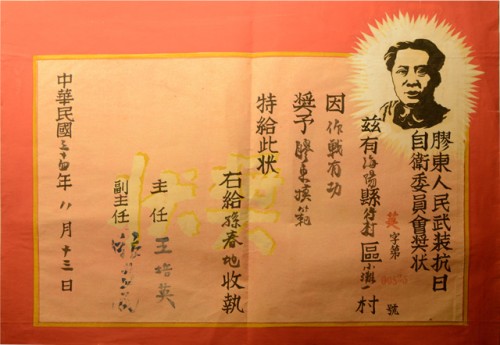 膠東人民武裝抗日
自衛委員會獎狀
英字第 號
茲有海陽縣行村區小灘村
因作戰有功
獎予膠東模範
特給此狀
右給孫春地收執
主任王培英
副主任
中華民國三十四年八月十三日
獎狀